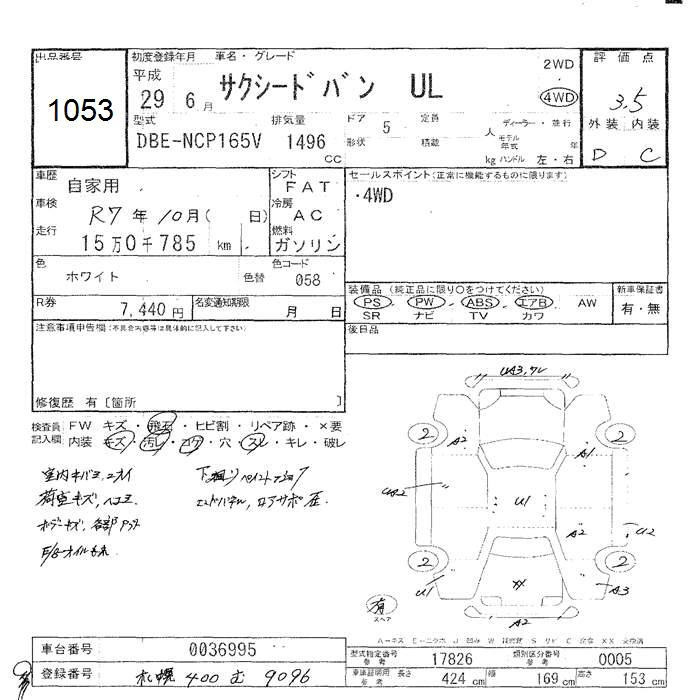 出品番号
1053
初度登録年月 車名・グレード
平成
29 6月 サクシードバン UL
2WD
4WD
評価点
3.5
外装 内装
D C
型式 排気量
DBE-NCP165V 1496 cc
ドア 5 定員 人 ディーラー・並行
形状 積載 kg モデル年式 年
ハンドル 左・右
車歴 自家用
シフト FAT
車検 R7年10月( 日)
冷房 AC
走行 15万0千785 km
燃料 ガソリン
色 ホワイト 色替
色コード 058
R券 7,440円 名変通知期限 月 日
セールスポイント(正常に機能するものに限ります)
・4WD
装備品 (純正品に限り○をつけてください)
PS PW ABS エアB AW
SR ナビ TV カワ
新車保証書
有・無
後日品
注意事項申告欄(不具合内容等は具体的に記入して下さい)
修復歴 有〔箇所 〕
検査員記入欄
FW キズ・飛石・ヒビ割・リペア跡・×要
内装 キズ・汚レ・コゲ・穴・スレ・キレ・破レ
荷室キズ、ヘコミ
UA3,ワレ
2 A2 A1 2
UA2 U1 A2 U2
2 2
U1 XX A3
有
スペア
A2
車台番号 0036995
登録番号 札幌 400 む 9096
型式指定番号 参考 17826
類別区分番号 参考 0005
車庫証明用 参考 長さ 424 cm 幅 169 cm 高さ 153 cm